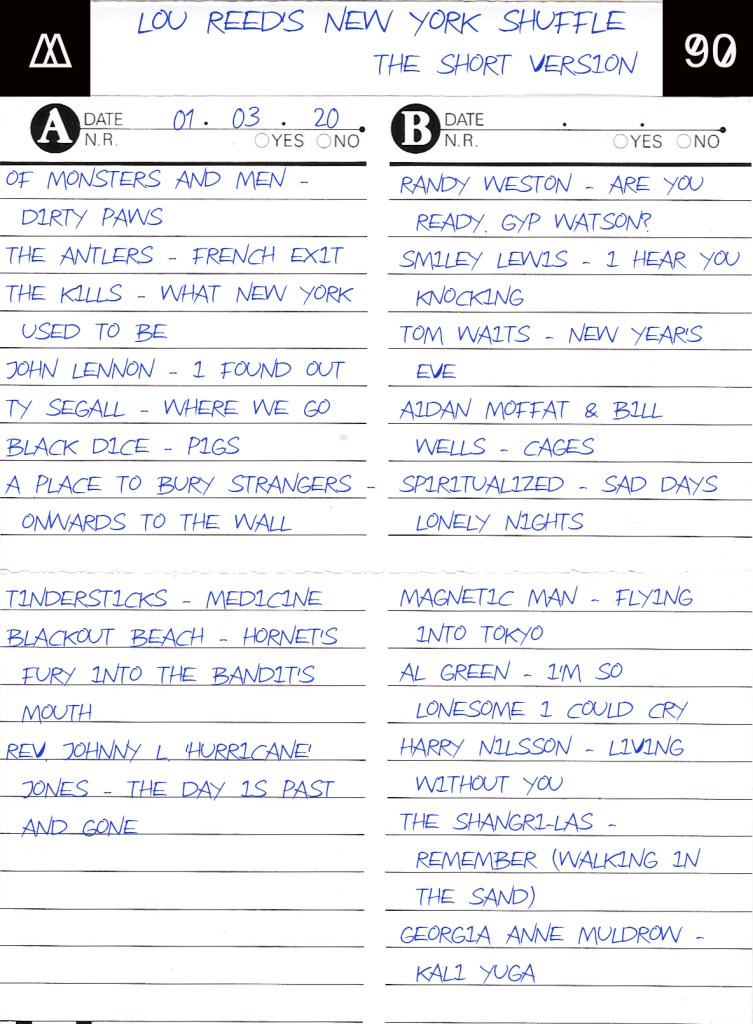 LOU REED'S NEW YORK SHUFFLE
THE SHORT VERSION
90
A DATE 01. 03. 20
N.R. YES NO
OF MONSTERS AND MEN -
DIRTY PAWS
THE ANTLERS - FRENCH EXIT
THE KILLS - WHAT NEW YORK
USED TO BE
JOHN LENNON - I FOUND OUT
TY SEGALL - WHERE WE GO
BLACK DICE - PIGS
A PLACE TO BURY STRANGERS -
ONWARDS TO THE WALL
TINDERSTICKS - MEDICINE
BLACKOUT BEACH - HORNET'S
FURY INTO THE BANDIT'S
MOUTH
REV. JOHNNY L. 'HURRICANE'
JONES - THE DAY IS PAST
AND GONE
B DATE . .
N.R. YES NO
RANDY WESTON - ARE YOU
READY, GYP WATSON?
SMILEY LEWIS - I HEAR YOU
KNOCKING
TOM WAITS - NEW YEAR'S
EVE
AIDAN MOFFAT & BILL
WELLS - CAGES
SPIRITUALIZED - SAD DAYS
LONELY NIGHTS
MAGNETIC MAN - FLYING
INTO TOKYO
AL GREEN - I'M SO
LONESOME I COULD CRY
HARRY NILSSON - LIVING
WITHOUT YOU
THE SHANGRI-LAS -
REMEMBER (WALKING IN
THE SAND)
GEORGIA ANNE MULDROW -
KALI YUGA